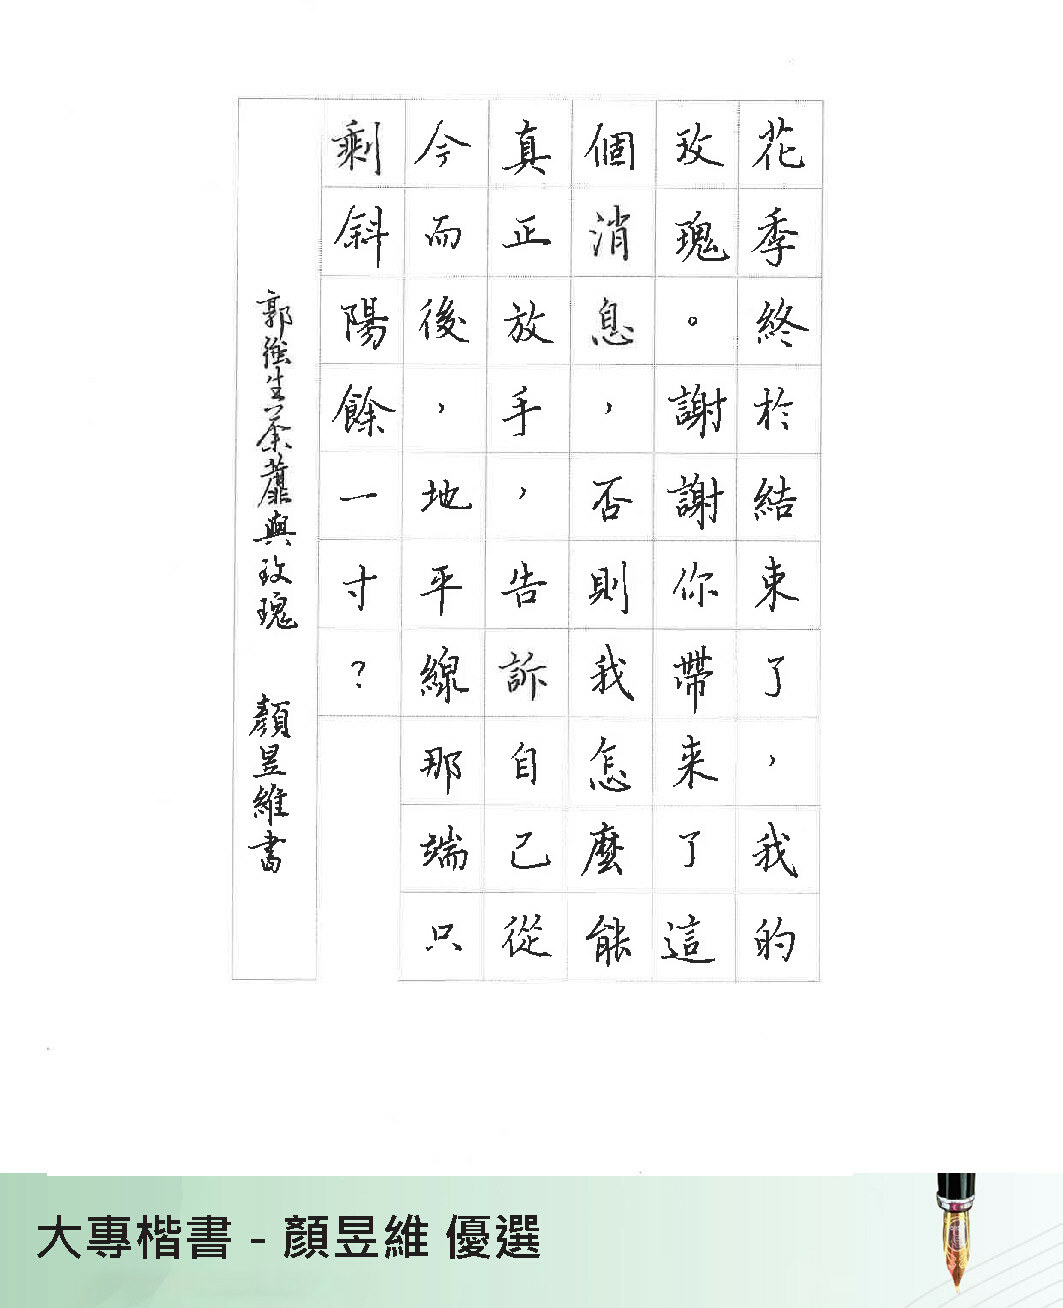 花季終於結束了，我的
玫瑰。謝謝你帶來了這
個消息，否則我怎麼能
真正放手，告訴自己從
今而後，地平線那端只
剩斜陽餘一寸？
郭強生荼蘼與玫瑰 顏昱維書
大專楷書 - 顏昱維 優選